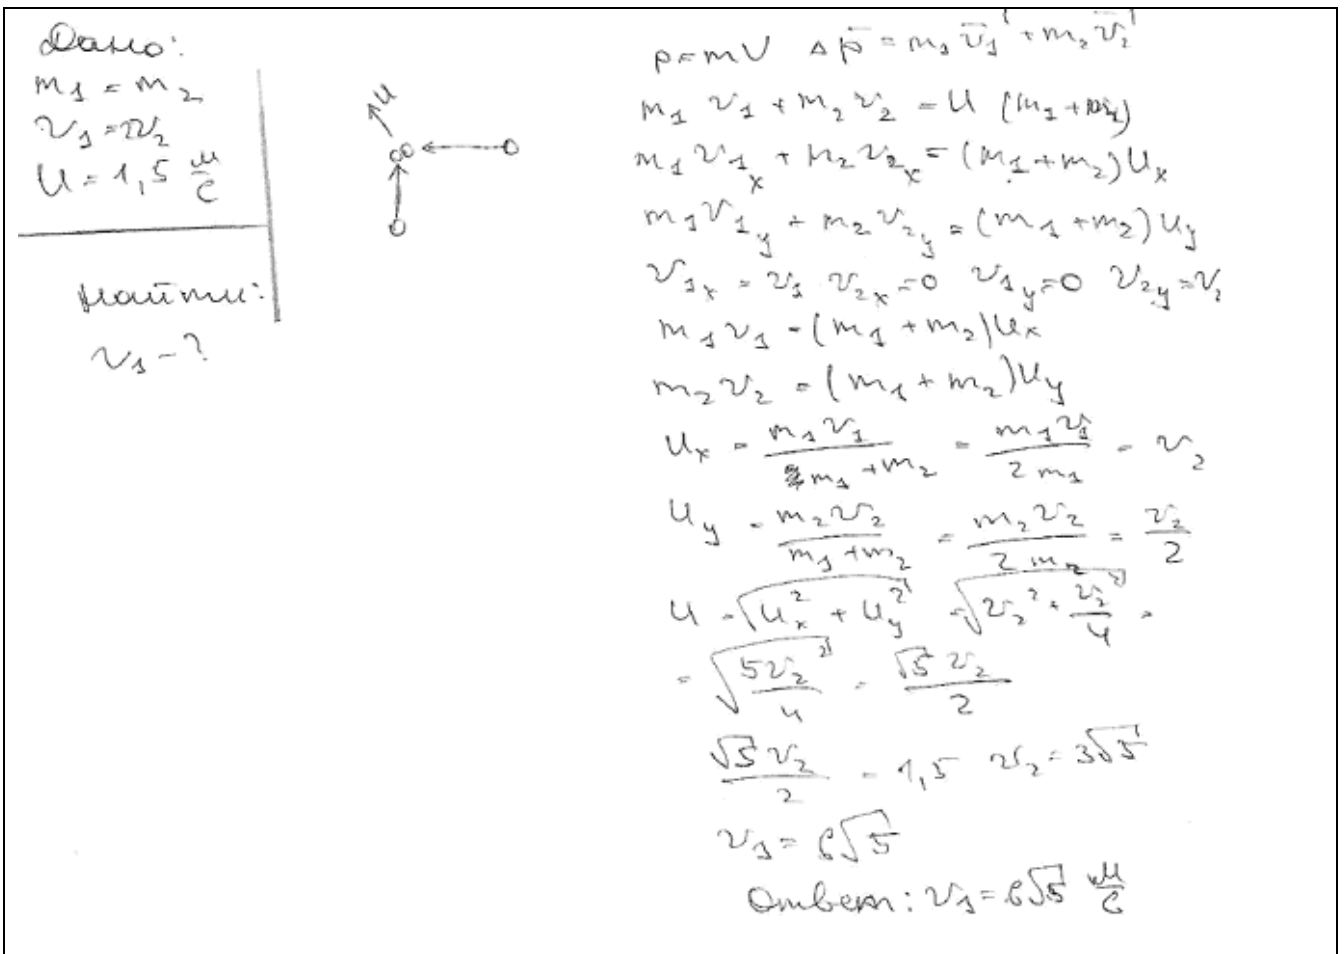 Дано:
m₁ = m₂
v₁ = 2v₂
U = 1,5 м/с
Найти:
v₁ - ?
U
p = mV Δp̄ = m₁v̄₁' + m₂v̄₂'
m₁v₁ + m₂v₂ = U (m₁ + m₂)
m₁v₁ₓ + m₂v₂ₓ = (m₁ + m₂)Uₓ
m₁v₁y + m₂v₂y = (m₁ + m₂)Uy
v₁ₓ = v₁ v₂ₓ = 0 v₁y = 0 v₂y = v₂
m₁v₁ = (m₁ + m₂)Uₓ
m₂v₂ = (m₁ + m₂)Uy
Uₓ = m₁v₁/(m₁ + m₂) = m₁v₁/2m₁ = v₂
Uy = m₂v₂/(m₁ + m₂) = m₂v₂/2m₂ = v₂/2
U = √(Uₓ² + Uy²) = √(v₂² + v₂²/4) =
= √(5v₂²/4) = √5 v₂/2
√5 v₂/2 = 1,5 v₂ = 3√5
v₁ = 6√5
Ответ: v₁ = 6√5 м/с